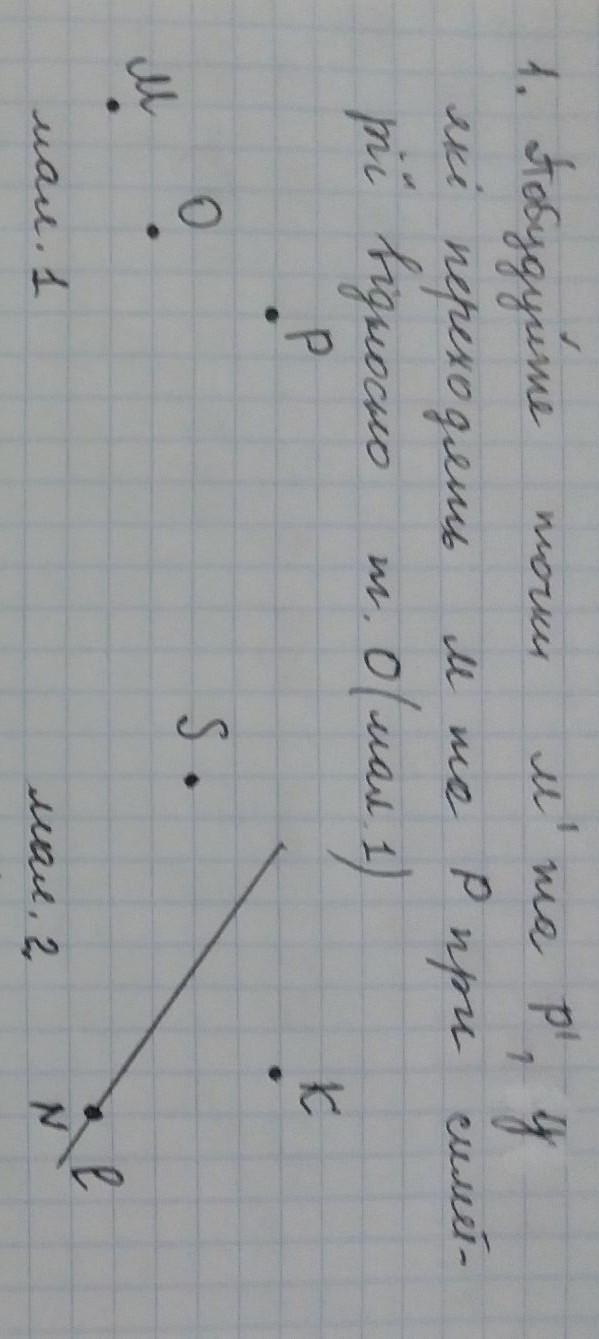 1. Побудуйте точки М' та Р', у
які переходять М та Р при симет-
рії відносно т. О (мал. 1)
P
K
O
S
M
l
N
мал. 1
мал. 2